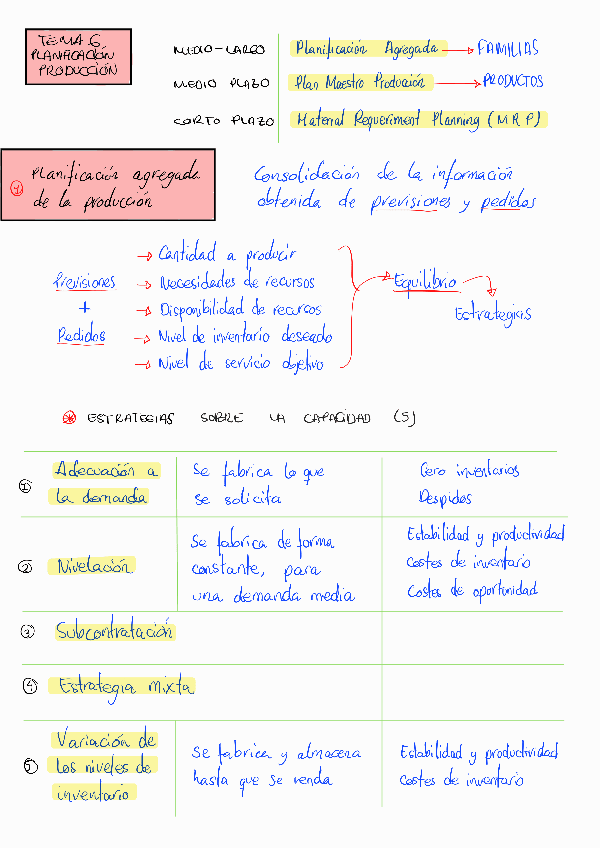 TEMA 6
PLANIFICACIÓN
PRODUCCIÓN
MEDIO-LARGO Planificación Agregada → FAMILIAS
MEDIO PLAZO Plan Maestro Producción → PRODUCTOS
CORTO PLAZO Material Requeriment Planning (MRP)
1 Planificación agregada
de la producción
Consolidación de la información
obtenida de previsiones y pedidos
Previsiones
+
Pedidos
→ Cantidad a producir
→ Necesidades de recursos
→ Disponibilidad de recursos
→ Nivel de inventario deseado
→ Nivel de servicio objetivo
Equilibrio
Estrategias
* ESTRATEGIAS SOBRE LA CAPACIDAD (5)
1 Adecuación a
la demanda
Se fabrica lo que
se solicita
Cero inventarios
Despidos
2 Nivelación
Se fabrica de forma
constante, para
una demanda media
Estabilidad y productividad
Costes de inventario
Costes de oportunidad
3 Subcontratación
4 Estrategia mixta
5 Variación de
los niveles de
inventario
Se fabrica y almacena
hasta que se venda
Estabilidad y productividad
Costes de inventario